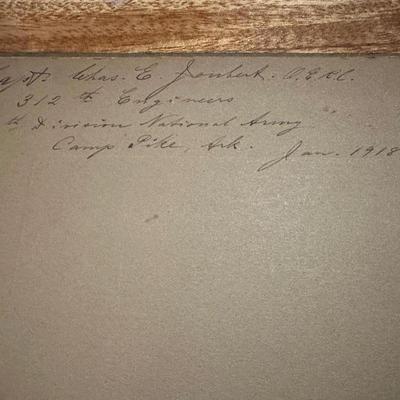 Capt. Chas. E. Joubert. O.E.R.C.
312th Engineers
th Division National Army
Camp Pike, Ark. Jan. 1918